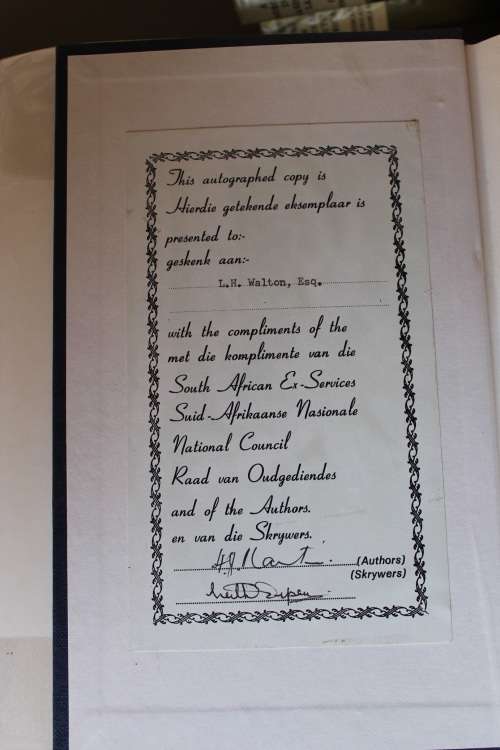 This autographed copy is
Hierdie getekende eksemplaar is
presented to:-
geskenk aan:-
L.H. Walton, Esq.
with the compliments of the
met die komplimente van die
South African Ex-Services
Suid-Afrikaanse Nasionale
National Council
Raad van Oudgediendes
and of the Authors.
en van die Skrywers.
(Authors)
(Skrywers)